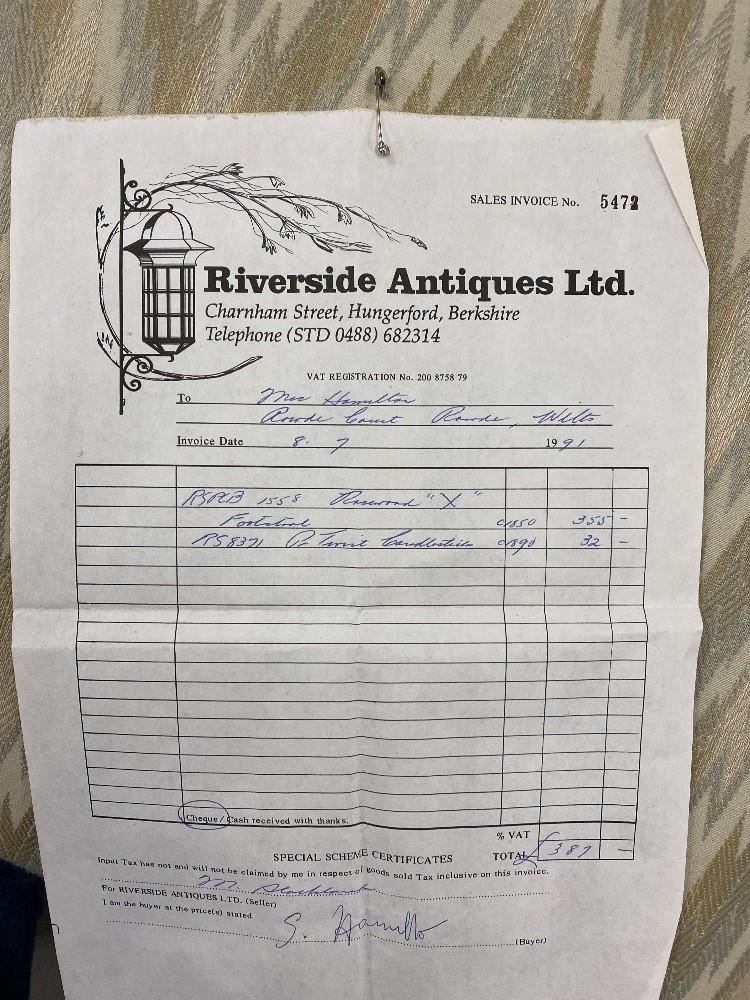 SALES INVOICE No. 5472
Riverside Antiques Ltd.
Charnham Street, Hungerford, Berkshire
Telephone (STD 0488) 682314
VAT REGISTRATION No. 200 8758 79
To Mrs Hamilton
Rowde Court Rowde, Wilts
Invoice Date 8. 7 1991
1558 Rosewood "X"
Footstool c1850 355 -
RS8371 Pr Candlesticks c1890 32 -
Cheque / Cash received with thanks.
% VAT
SPECIAL SCHEME CERTIFICATES TOTAL £387 -
Input Tax has not and will not be claimed by me in respect of goods sold Tax inclusive on this invoice.
For RIVERSIDE ANTIQUES LTD. (Seller)
I am the buyer at the price(s) stated
S. Hamilto (Buyer)